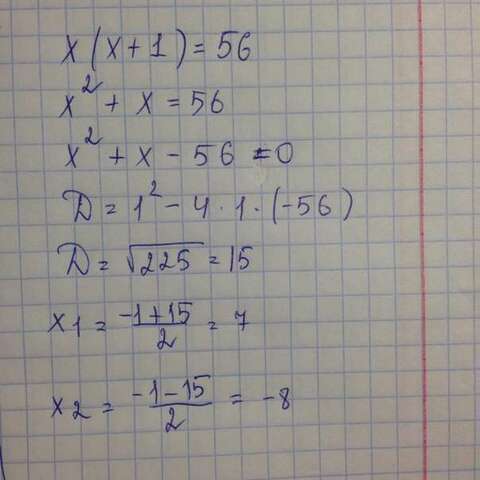 x(x+1)=56
x²+x=56
x²+x-56=0
D=1²-4·1·(-56)
D=√225=15
x1=(-1+15)/2=7
x2=(-1-15)/2=-8